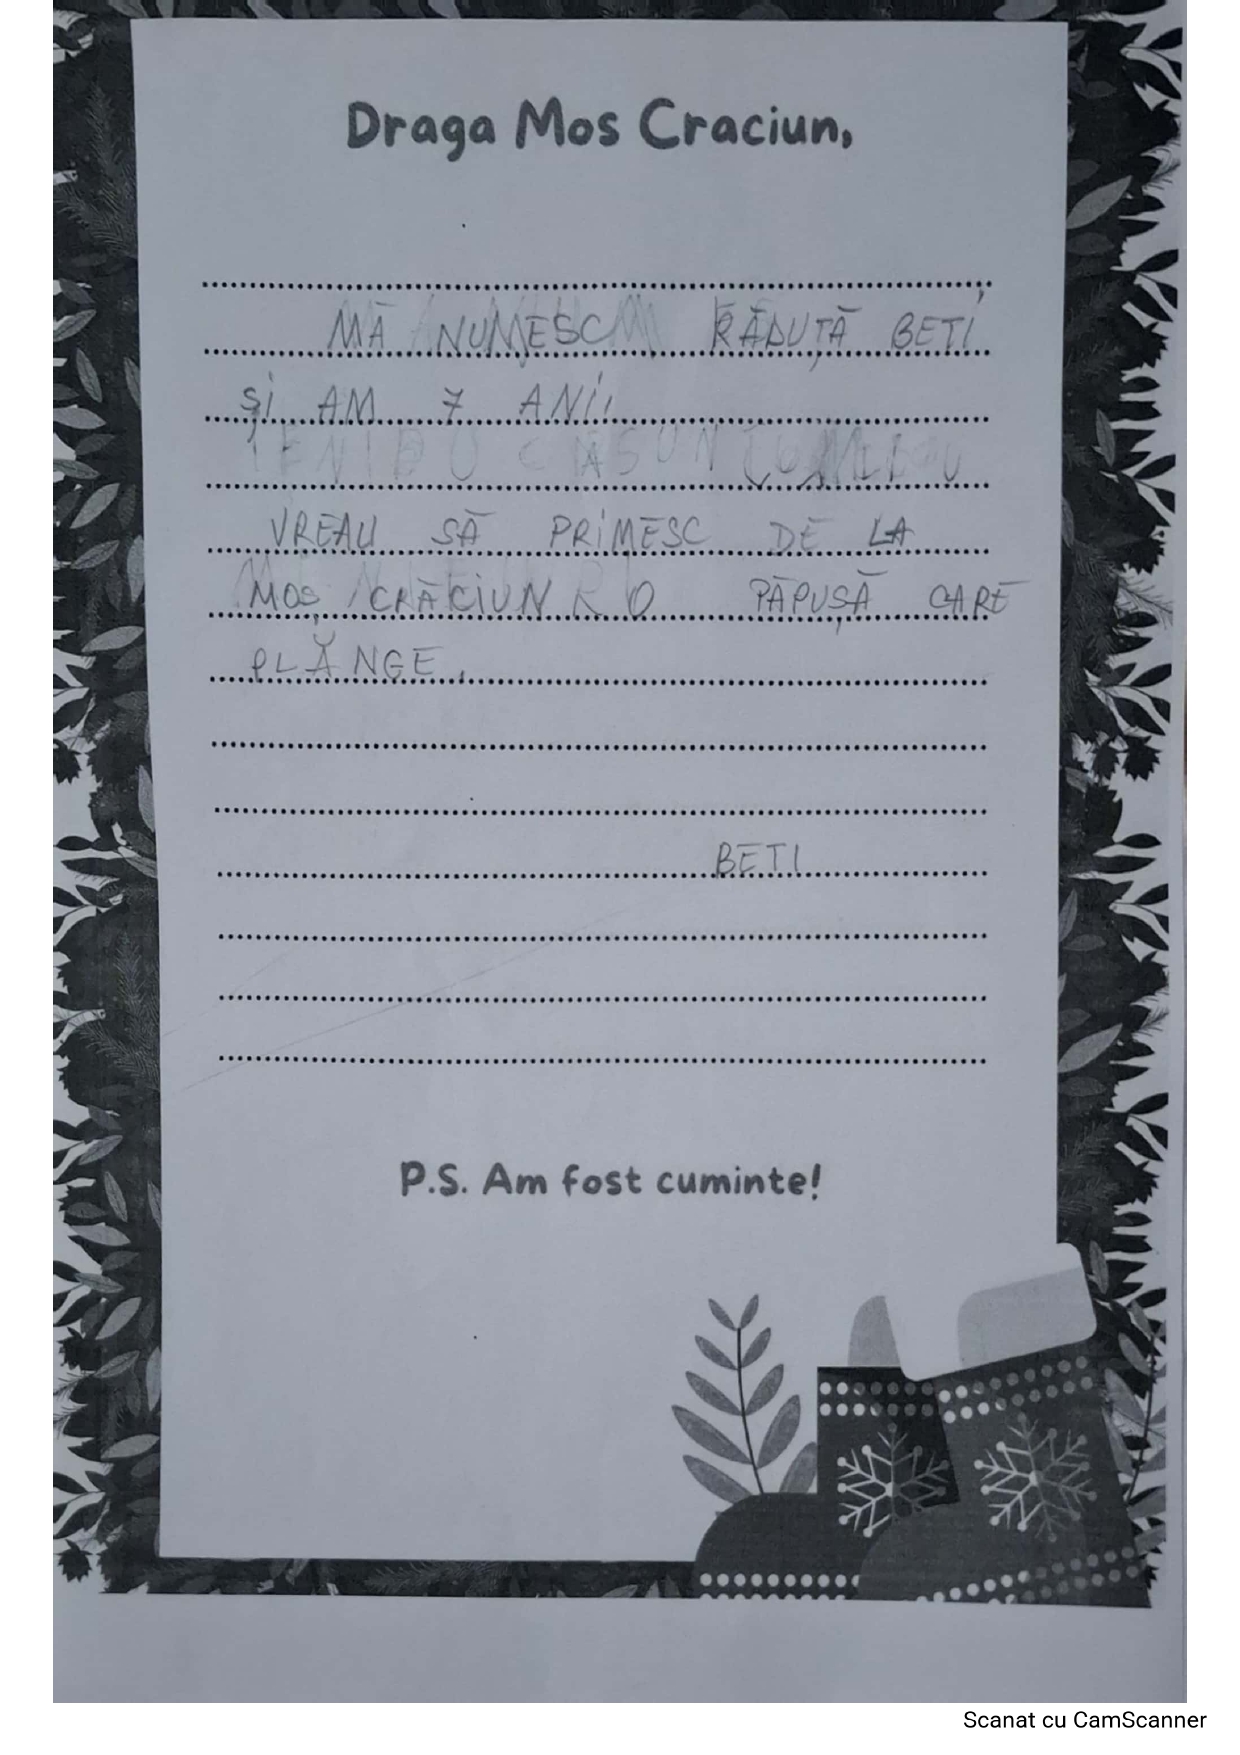 Draga Mos Craciun,
MĂ NUMESC RĂDUȚĂ BETI
ȘI AM 7 ANI,
VREAU SĂ PRIMESC DE LA
MOȘ CRĂCIUN O PĂPUȘĂ CARE
PLĂNGE.
BETI
P.S. Am fost cuminte!
Scanat cu CamScanner